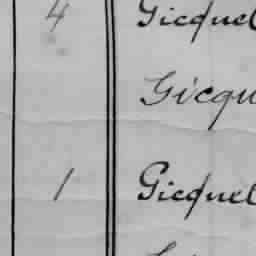 4 Gicquel
Gicqu
1 Gicquel